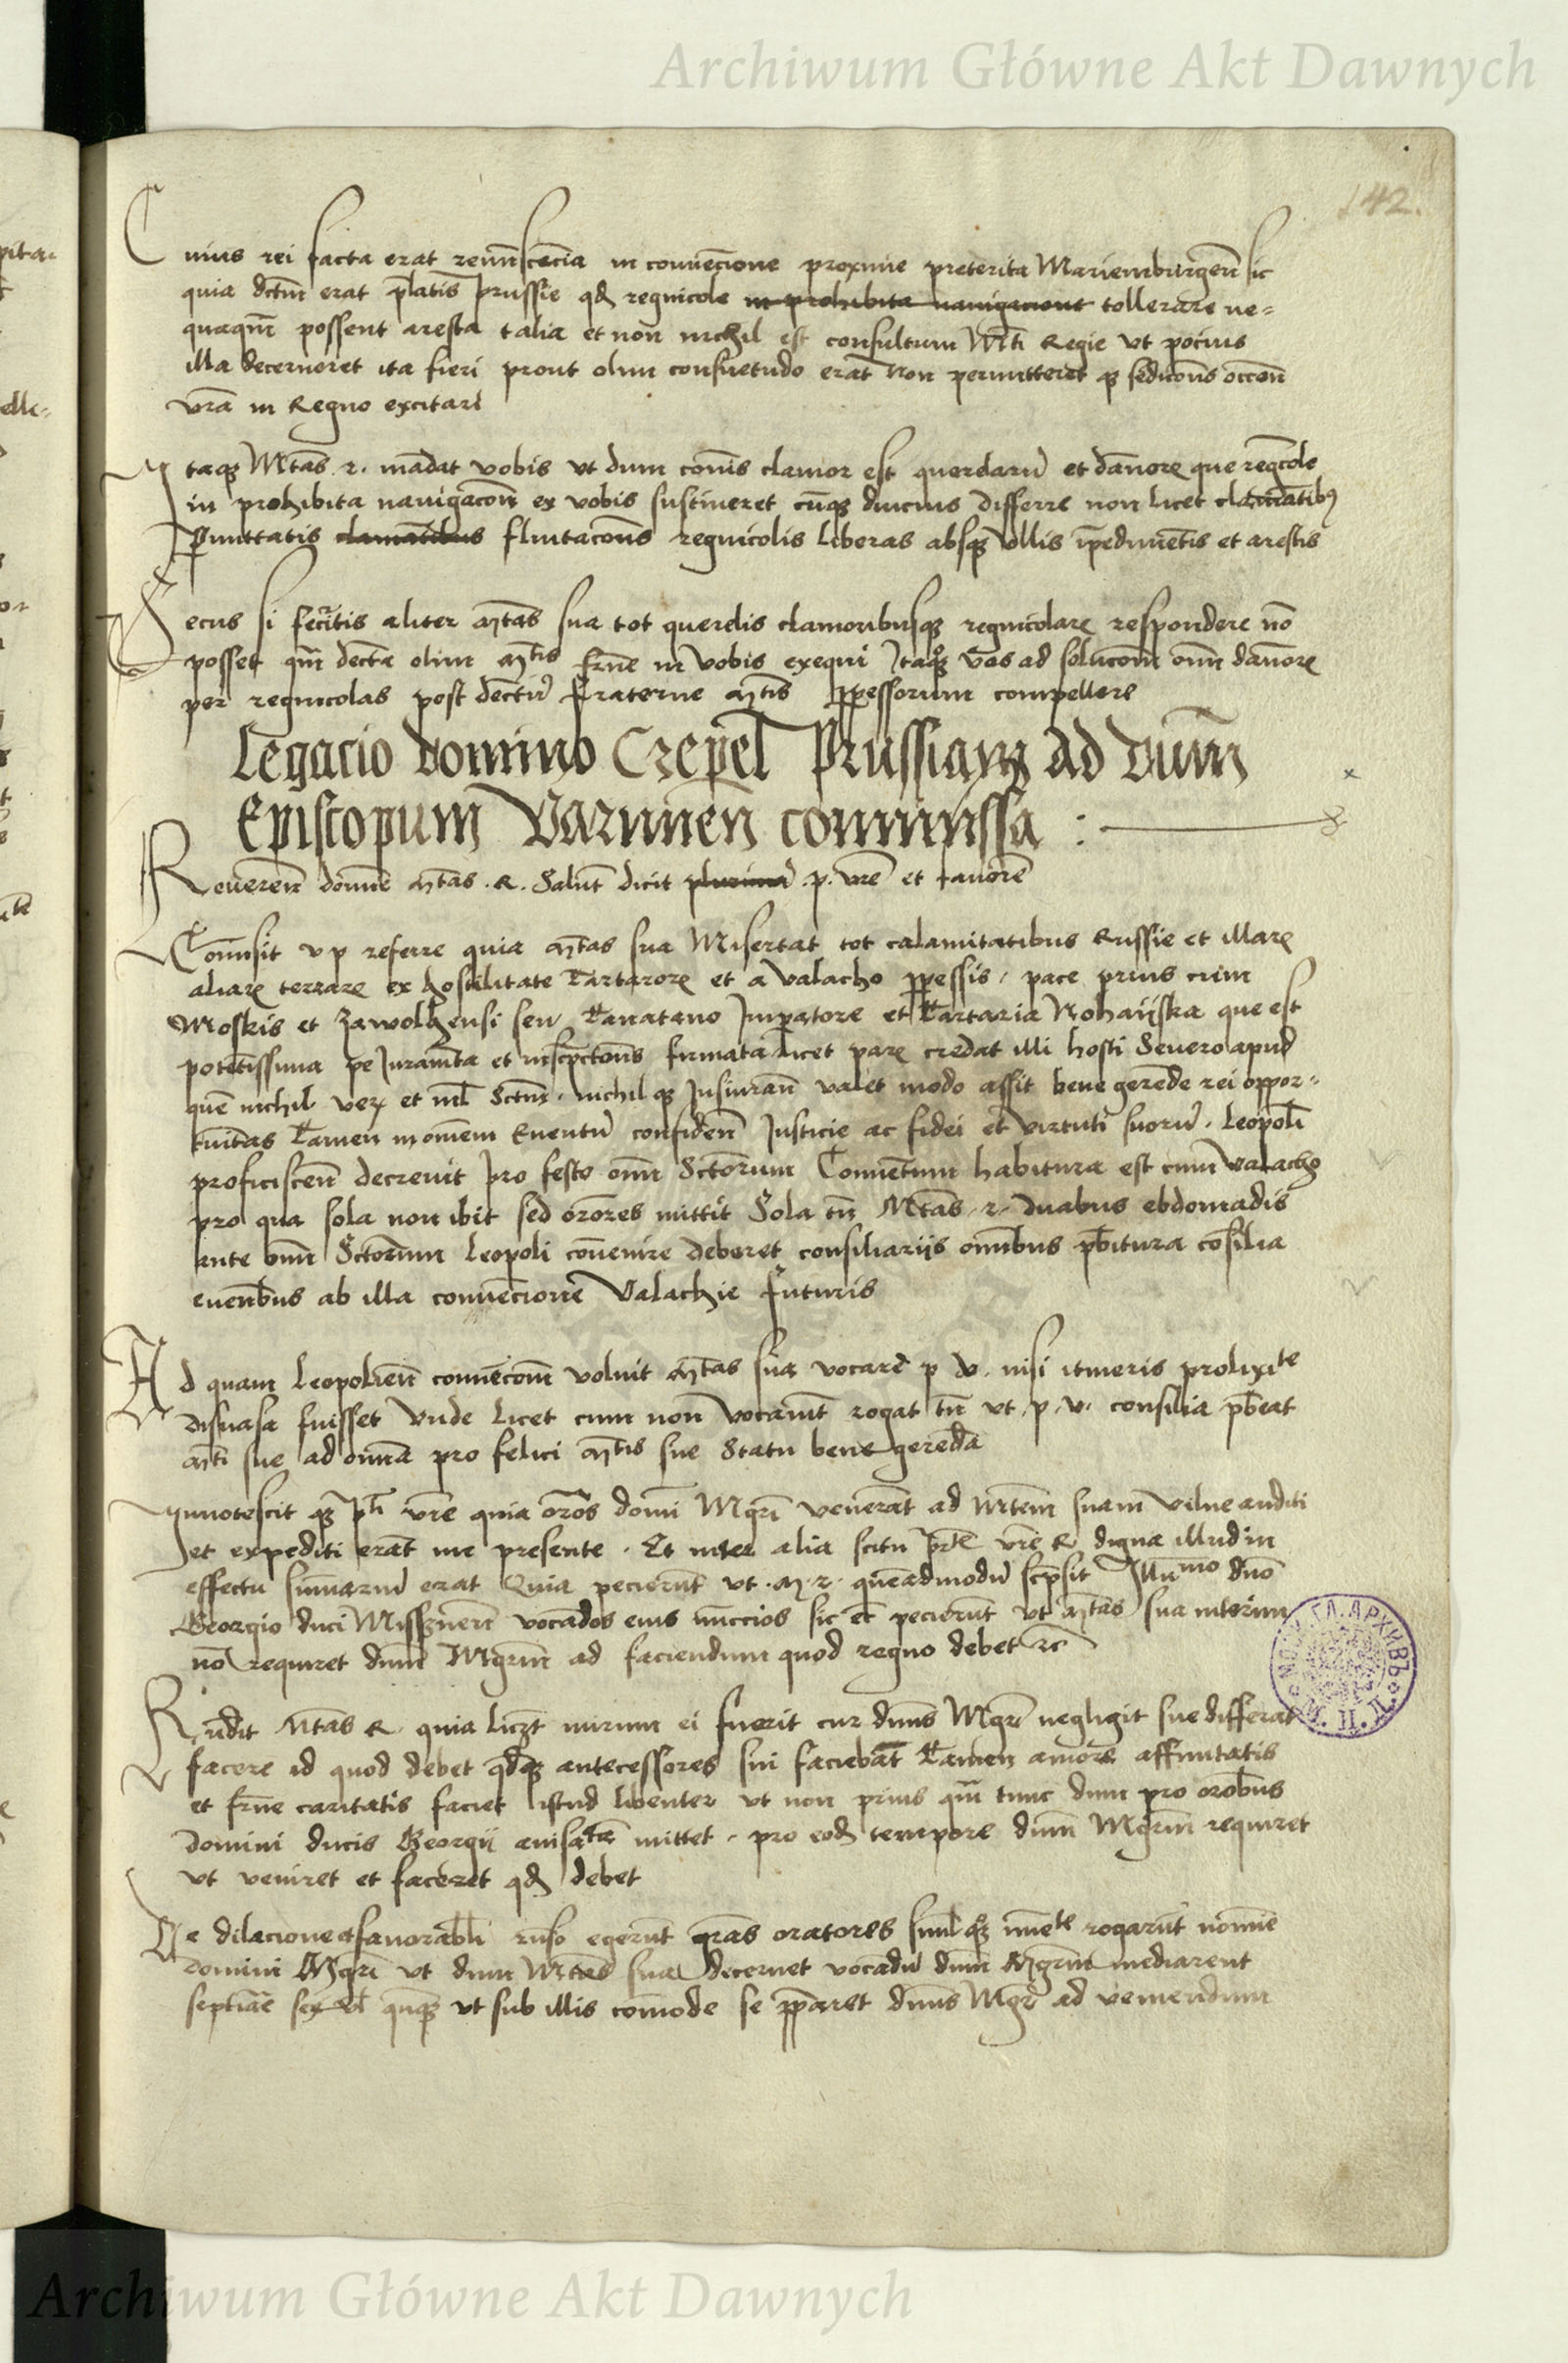 Archiwum Główne Akt Dawnych
142.
Cuius rei facta erat renuñscẽcia in convẽcione proxime preterita Marienburgeñ sic
quia dctm̃ erat p̃latis prussie qđ regnicole in prohibita navigacione tollerare ne-
quaqm̃ possent aresta talia et non nichil est consultum Mti Regie ut pocius
illa decerneret ita fieri prout olim consuetudo erat Non permitteret qз sedicoñs occoñ
vrã in Regno excitari
Itaqз Mtas r. mãdat vobis ut dum coĩis clamor est querelarũ et dãnorꝝ que regcole
in prohibita navigacoñ ex vobis sustineret cũqз diucius differre non licet clamãtibз
Pmittatis clamãtibus fluitacoñs regnicolis liberas absqз ullis ĩpedimẽtis et arestis
Secus si fecitis aliter Mtas sua tot querelis clamoribusqз regnicolarꝝ respondere nõ
posset qm̃ decta olim Mtis frñe in vobis exequi Itaqз vos ad solucoñ om̃ dãnorꝝ
per regnicolas post dectũ fraterne Mtis ꝑpessorum compellere
Legacio domino Czepel Prussiam ad dñum
Episcopum Varmieñ commissa :
Revereñ domĩe Mtas . R . Salut̃ dicit plurimã . p . vrẽ et favorẽ
Com̃isit v p referre quia Mtas sua Misertat tot calamitatibus Russie et illarꝝ
aliarꝝ terrarꝝ ex hostilitate Tartarorꝝ et a valacho ꝑpessis / pace prius cum
Moskis et Zawolhensi seu Tanatano Imꝑatore et Tartaria Nohaijska que est
potẽtissima pe Iuramẽta et inscpctoñs firmata licet parꝝ credat illi hosti Severo apud
quẽ nichil verꝝ et nil Sctm̃ . nichil qз Iusiurañ valet modo assit bene gerẽde rei oppor-
tunitas Tamen in om̃em Eventũ confideñ Iusticie ac fidei et virtuti suorũ . Leopoli
proficisceñ decrevit Pro festo om̃ Sctorum Conventum habitura est cum Valacho
pro qua sola non ibit sed orores mittit Sola tñ Mtas . r . duabus ebdomadis
ante om̃ Sctorum Leopoli convenire deberet consiliarijs om̃ibus p̃bitura cõsilia
evenbus ab illa convẽcione Valachie futuris
Ad quam Leopolieñ convẽcoñ voluit Mtas sua vocare p v . nisi itineris prolixite
disuasa fuisset Unde licet eum non vocavit rogat tñ ut . p . v . consilia p̃beat
Mti sue ad om̃ia pro felici Mtis sue Statu bene gerẽda
Innotescit qз pti vrẽ quia oros domi Mgri venerãt ad Mtem suam vilne auditi
et expediti erãt me presente . Et inter alia scitu prte vrẽ R digna illud in
effectu sum̃arũ erat Quia pecierũt ut . M . r . quẽadmodũ scpsit Illmo dño
Georgio duci Misszneñ vocãdos eius nũccios sic et pecierũt ut Mtas sua interim
nõ requiret dñm Mgrm ad faciendum quod regno debet rc
Rñdit Mtas R . quia liczt mirum ei fuerit cur dñus Mgr negligit sue differat
facere id quod debet qđqз antecessores sui faciebãt Tamen amore affinitatis
et frñe caritatis faciet istud libenter ut non prius qm̃ tunc dum pro orobus
domini ducis Georgij avisata mittet . pro eođ tempore dñm Mgrm requiret
ut veniret et faceret qđ debet
De dilacione favorabli rurso egerũt grãs oratores simlqз imẽte rogarũt nomĩe
domini Mgri ut dum Mtas sua decernet vocãdũ dñm Mgrm mediarent
septiãe sex vl quĩqз ut sub illis com̃ode se ꝑparet dñus Mgr ad veniendum
Archiwum Główne Akt Dawnych